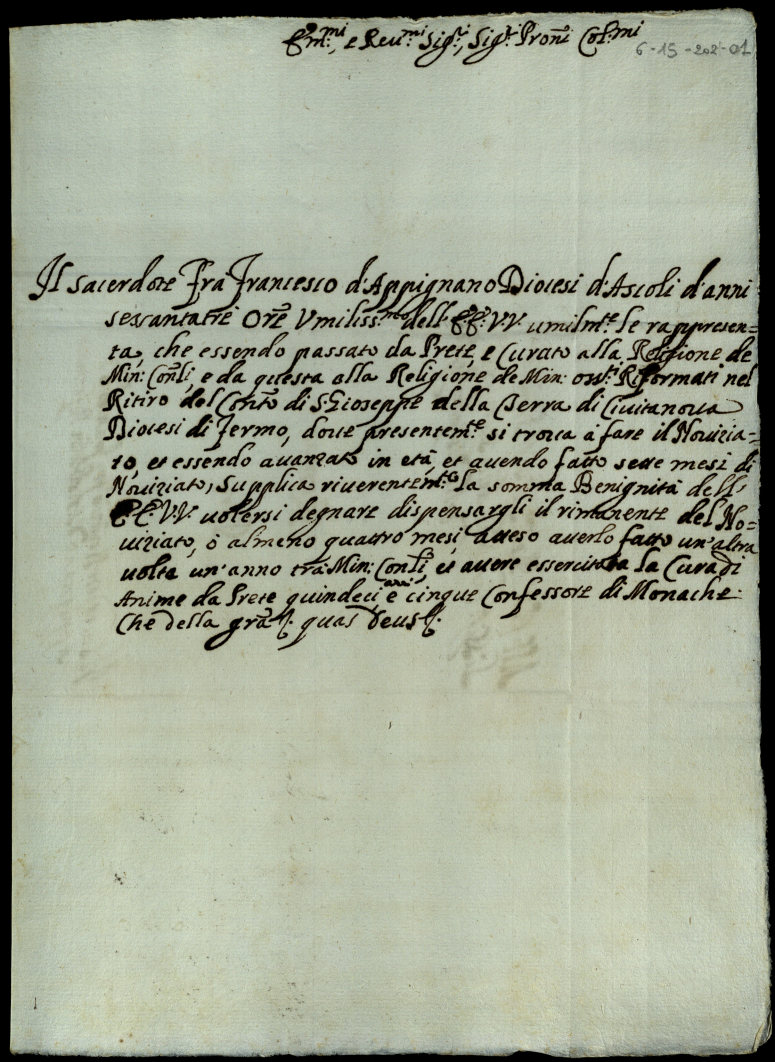 Em.mi, e Reu.mi Sig.ri, Sig.ri Proñi Col.mi
6-15-202-01
Il Sacerdote Fra Francesco d'Appignano Diocesi d'Ascoli d'anni
sessantatre Orẽ Vmiliss.mo dell' EE: VV. umilm.te le rappresen=
ta, che essendo passato da Prete, e Curato alla Religione de
Min: Conli, e da questa alla Religione de Min: oss.ti Riformati nel
Ritiro del Conto di S. Gioseppe della Cerra di Ciuitanoua
Diocesi di Fermo, doue presentem.te si troua à fare il Nouizia=
to, et essendo auanzato in età, et auendo fatto sette mesi di
Nouiziato, Supplica riuerentem.te la somma Benignità dell'
EE: VV. uolersi degnare dispensargli il rimanente del No=
uiziato, ò almeno quattro mesi, atteso auerlo fatto un'altra
volta un'anno tra Min: Conli, et auere essercitata la Cura di
anni
Anime da Prete quindeci, e cinque Confessore di Monache.
Che della gra. quas Deus.